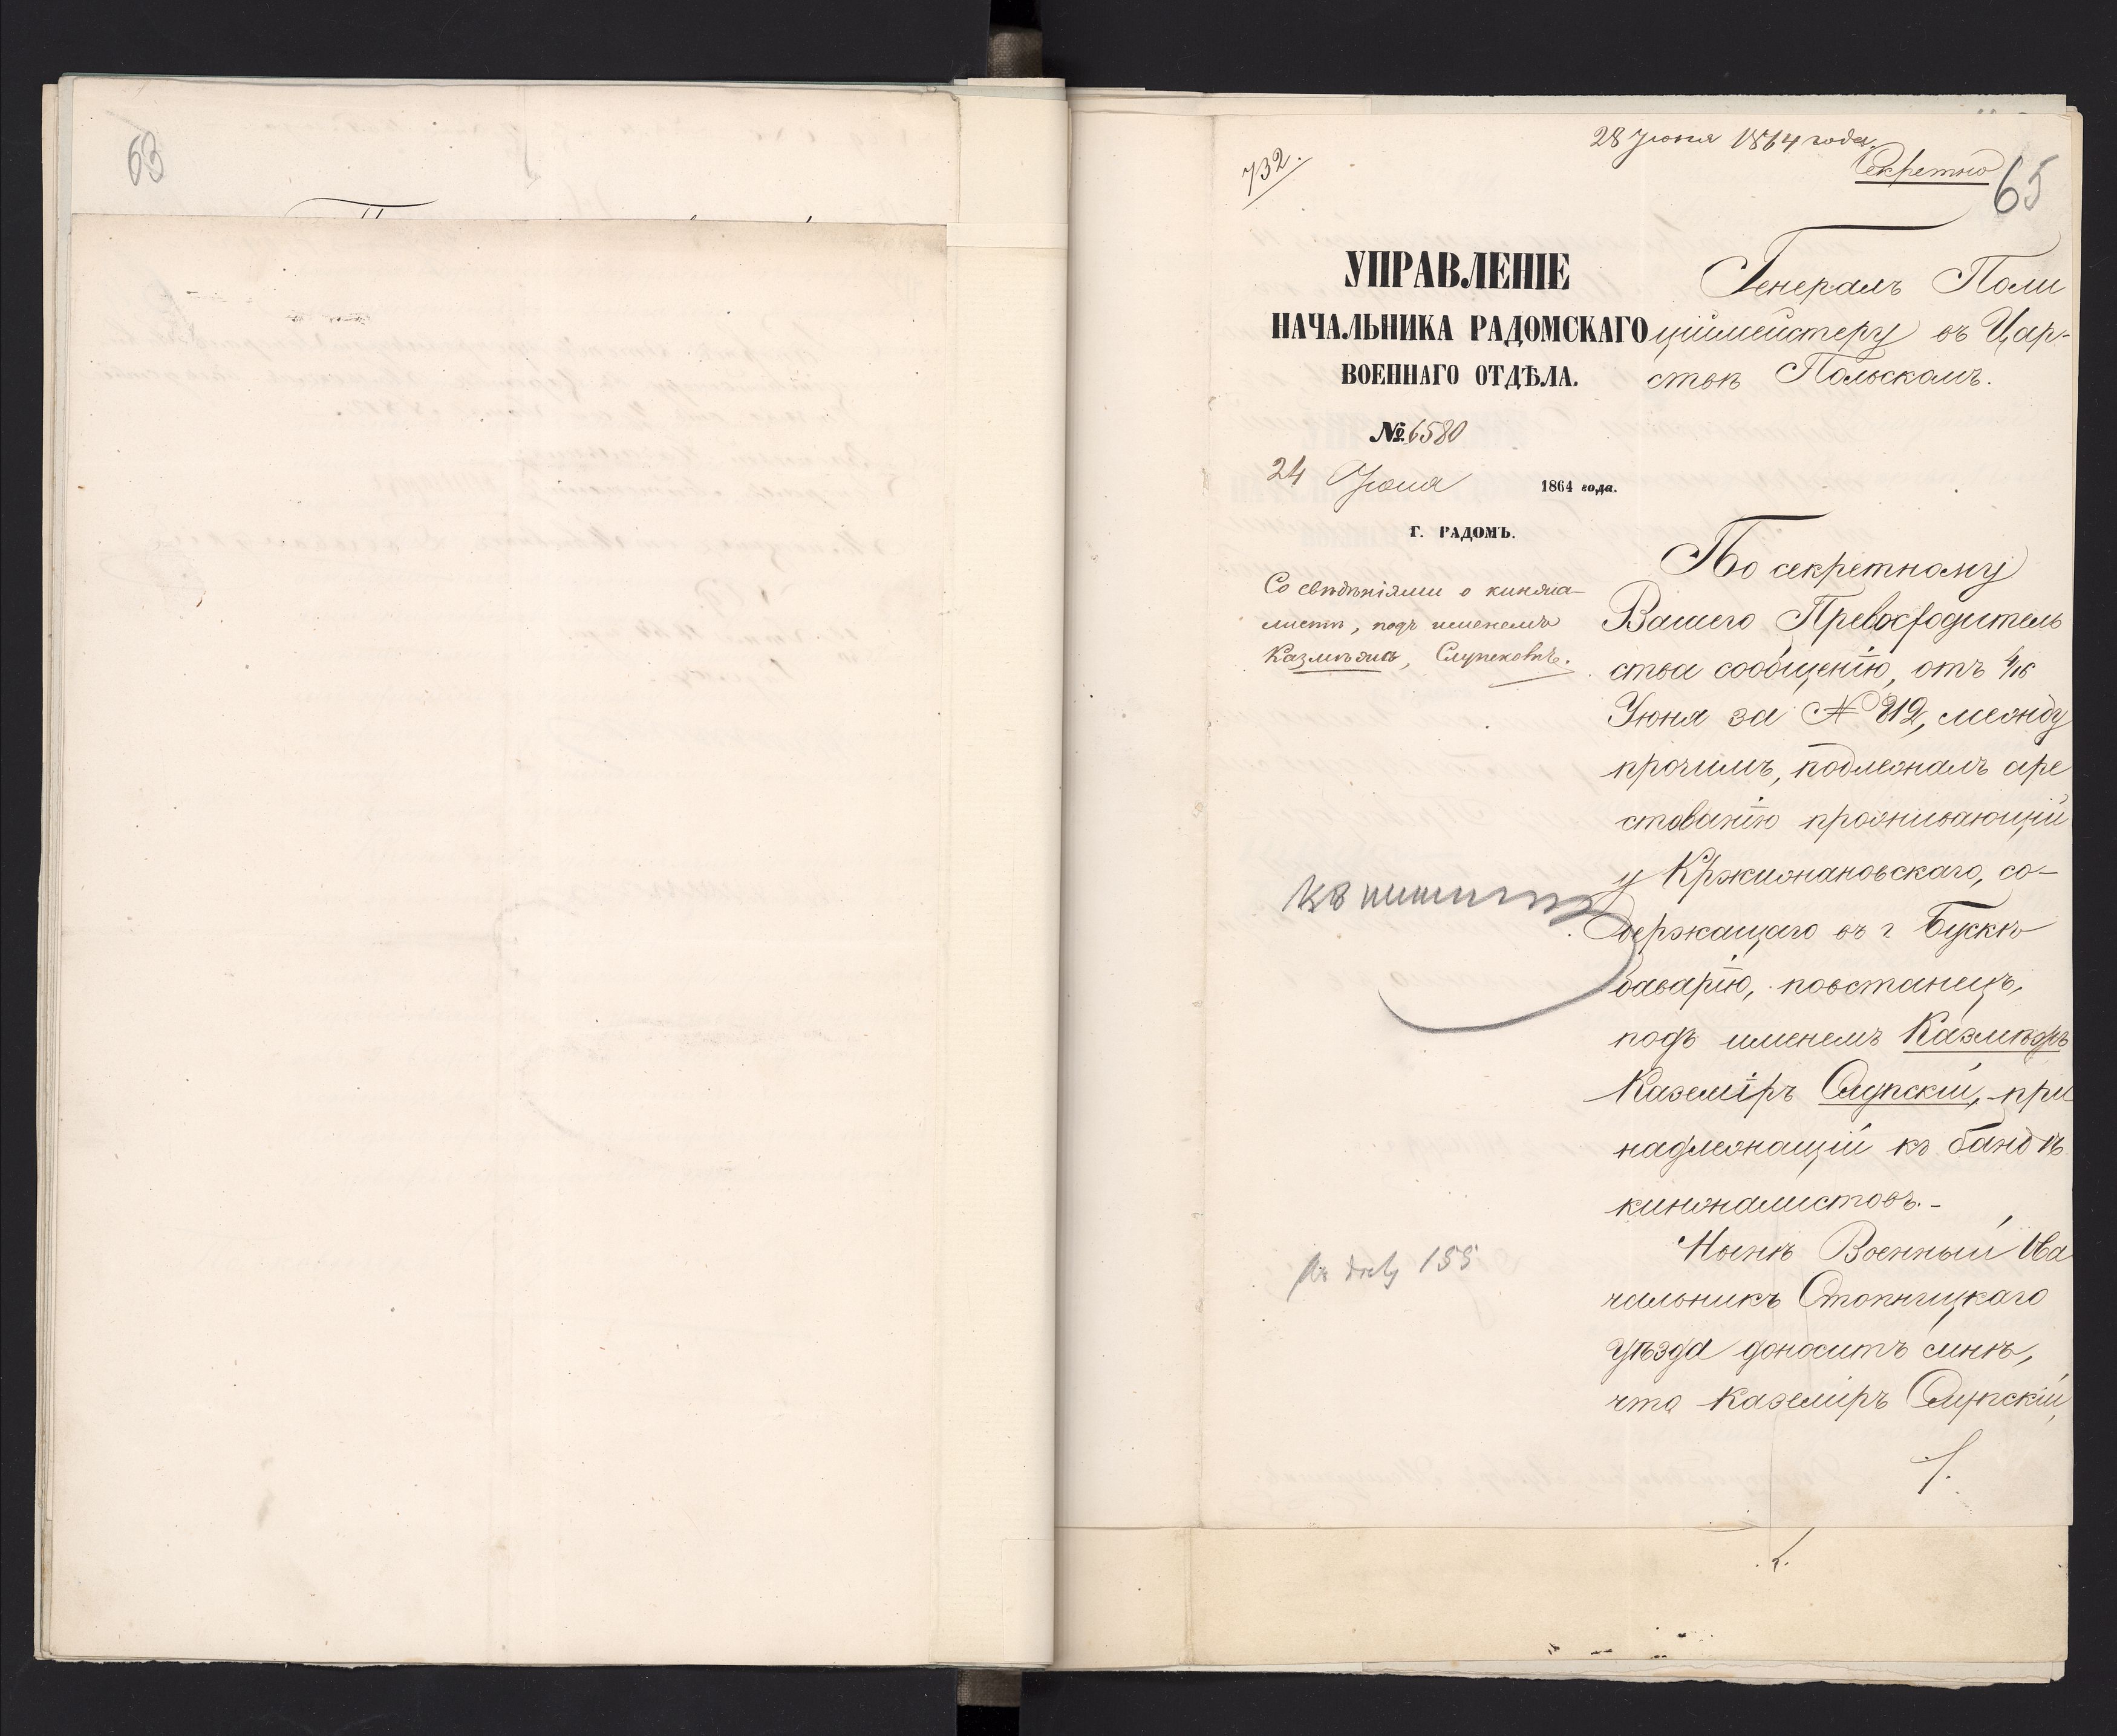 63
732.
28 Іюня 1864 года.
Секретно
65
УПРАВЛЕНІЕ
НАЧАЛЬНИКА РАДОМСКАГО
ВОЕННАГО ОТДѢЛА.
№ 6580
24 Іюня 1864 года.
Г. РАДОМЪ.
Со свѣдѣніями о кинжа-
листѣ, подъ именемъ
Казмѣжъ, Слупсковѣ.
Генералъ Поли
цiймейстеру въ Цар-
ствѣ Польскомъ.
По секретному
Вашего Превосходитель
ства сообщенію, отъ 4/16
Іюня за № 812, между
прочимъ, подлежалъ аре
стованію проживающій
у Кржижановскаго, со-
держащаго въ г Бускѣ
баварію, повстанецъ,
подъ именемъ Казмѣжъ
Каземіръ Слупскій, при
надлежащій къ бандѣ
кинжалистовъ.-
Нынѣ Военный На
чальникъ Стопницкаго
Уѣзда доноситъ мнѣ,
что Каземіръ Слупскій,
къ дѣлу 155